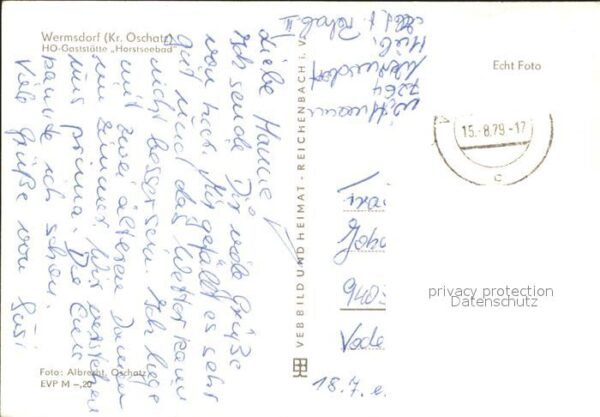 Wermsdorf (Kr. Oschatz)
HO-Gaststätte „Horstseebad"
Liebe Hanne!
Ich sende Dir viele Grüße
von hier. Mir gefällt es sehr
gut und das Wetter kann
nicht besser sein. Ich liege
mit zwei älteren Damen
im Zimmer. Wir verstehen
uns prima. Die
kannte ich schon.
Viele Grüße von Susi
Foto: Albrecht, Oschatz
EVP M -,20
VEB BILD UND HEIMAT · REICHENBACH i. V.
7264
Wermsdorf
Echt Foto
15.-8.79-17
c
940
18.7.
privacy protection
Datenschutz